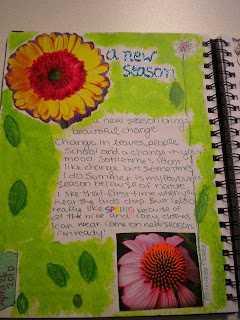 a new
season
a new season brings
beautiful change
Change in leaves, people,
school and a change in your
mood. Sometimes I don't
like change, but sometimes
I do. Summer is my favourite
season because of nature.
I like that first time when you
hear the birds chirp. But I also
really like SPRING because of
all the nice and cozy clothes
I can wear. Come on new season
I'm ready!
2010